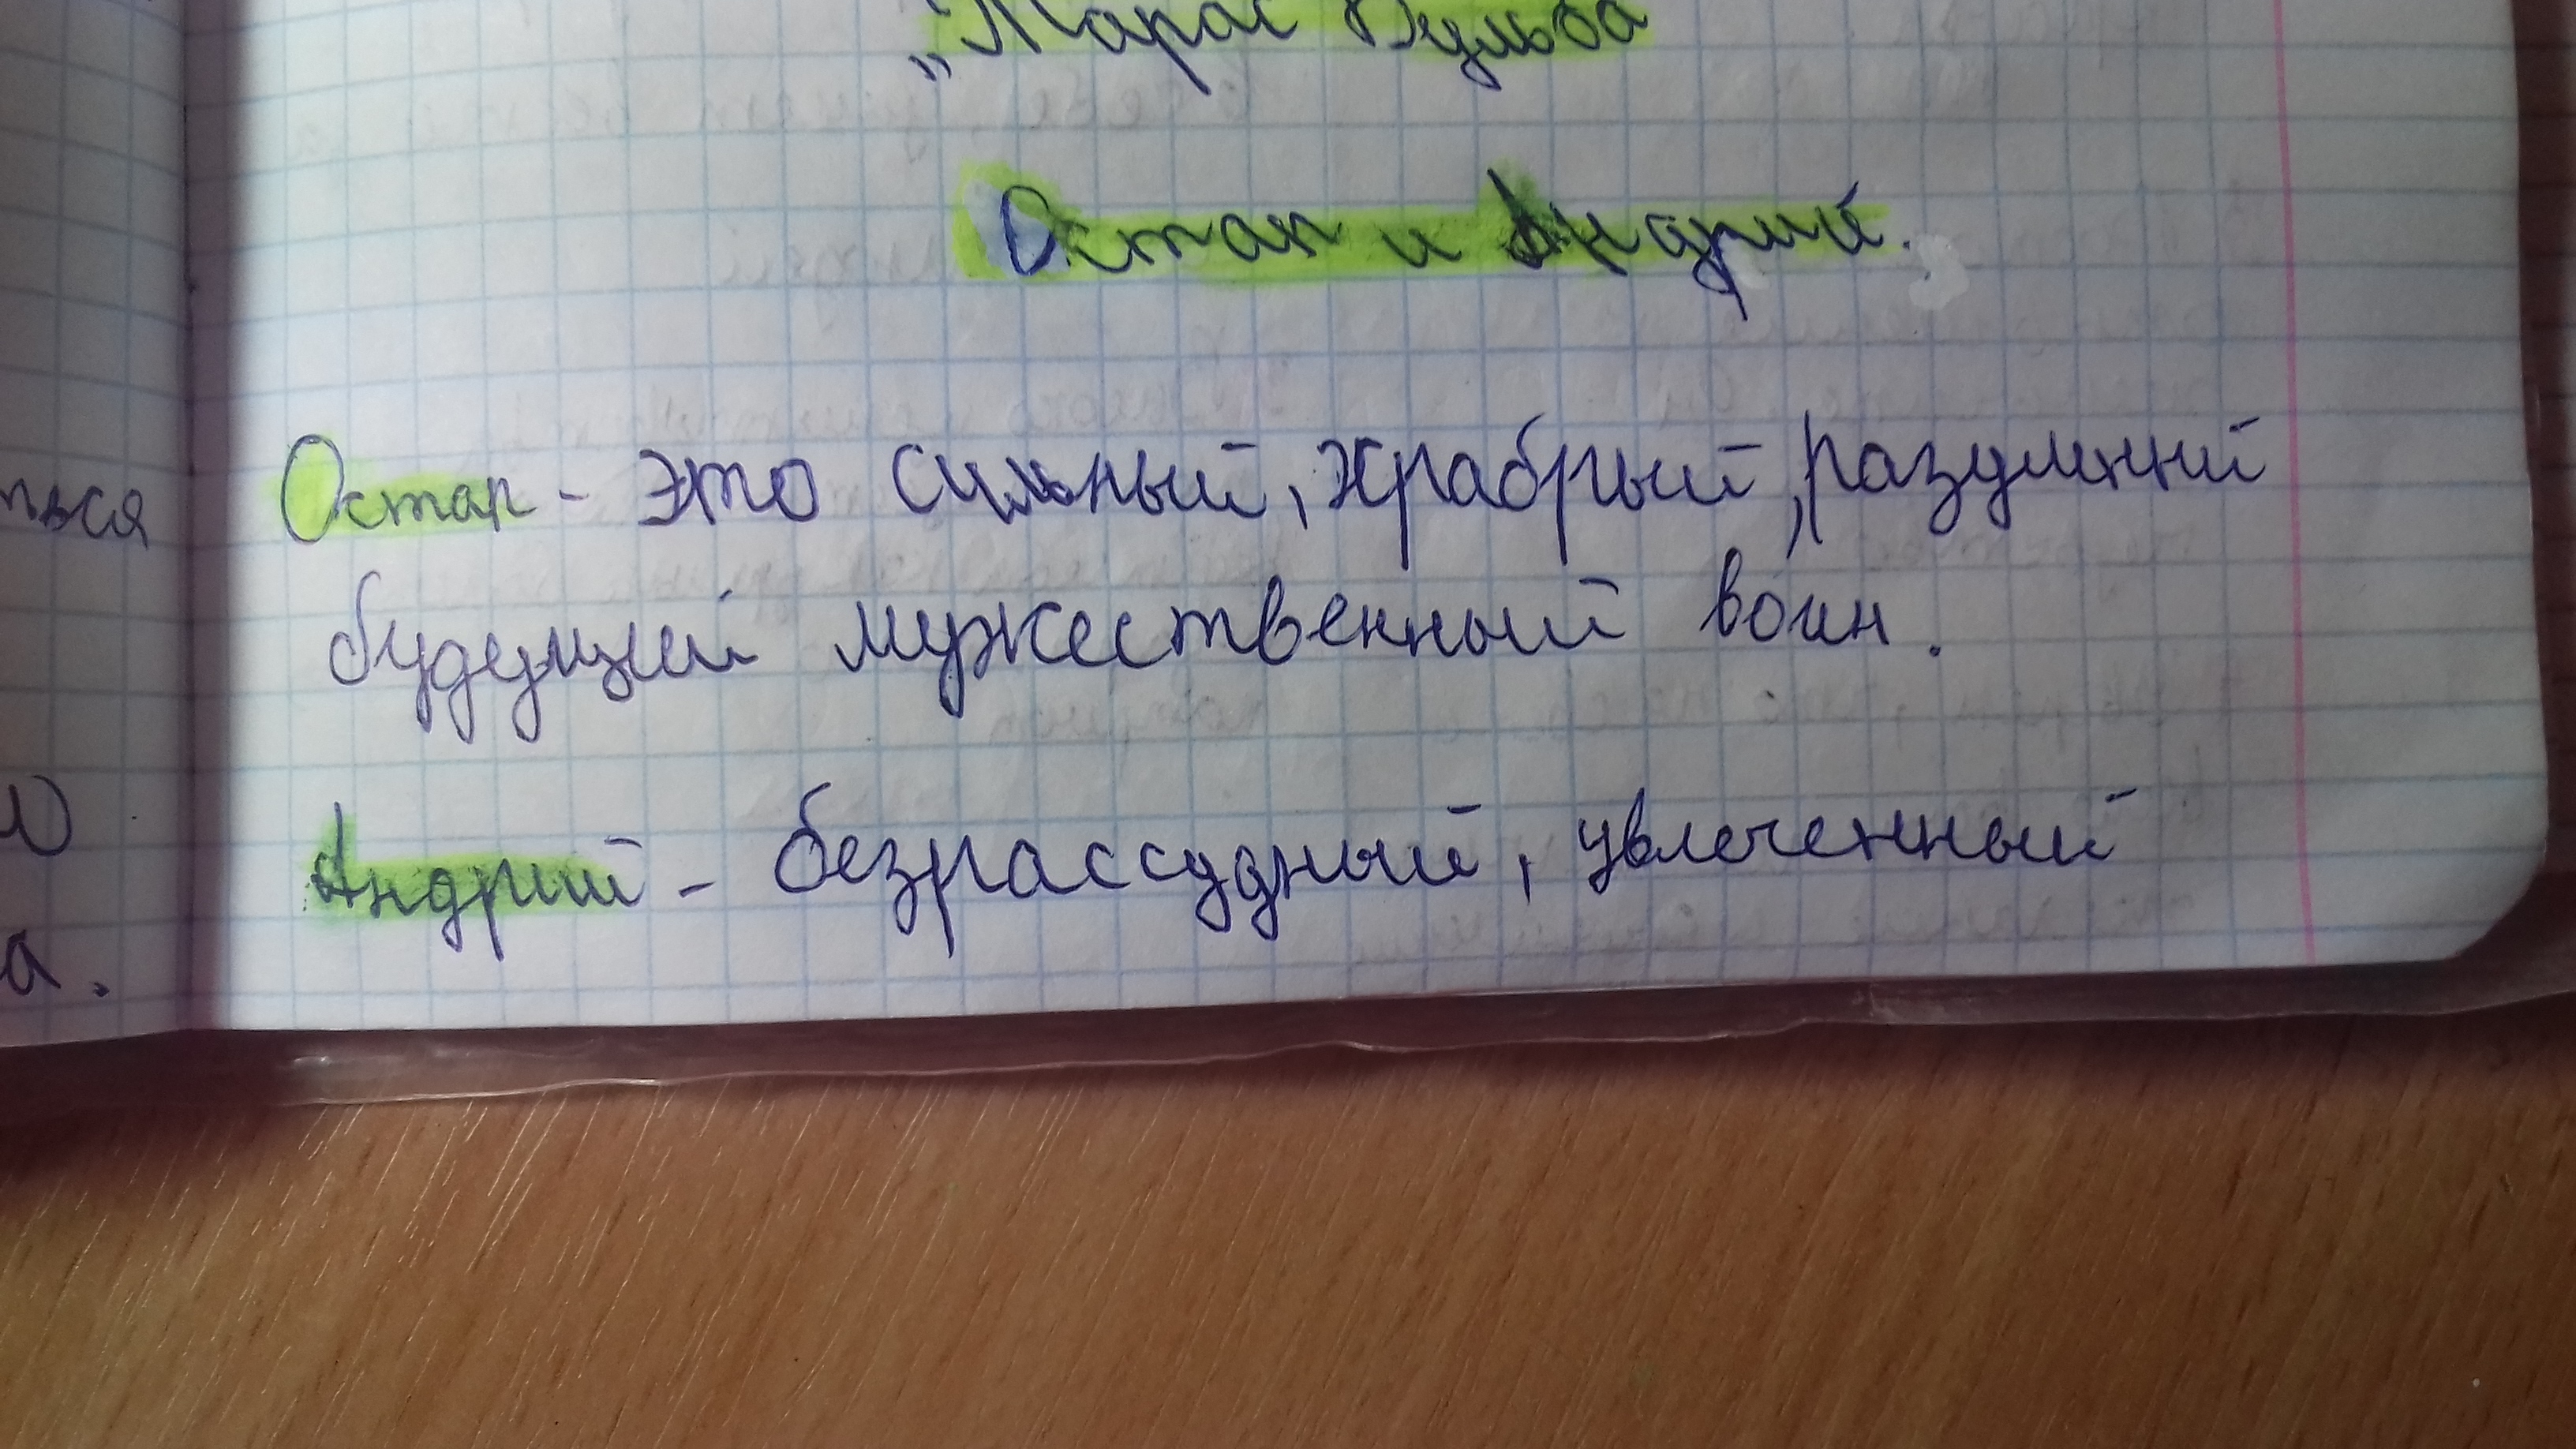 „Тарас Бульба
Остап и Андрий.
Остап - это сильный, храбрый, разумний
будущий мужественный воин.
Андрий - безрассудный, увлеченный
ться
а.